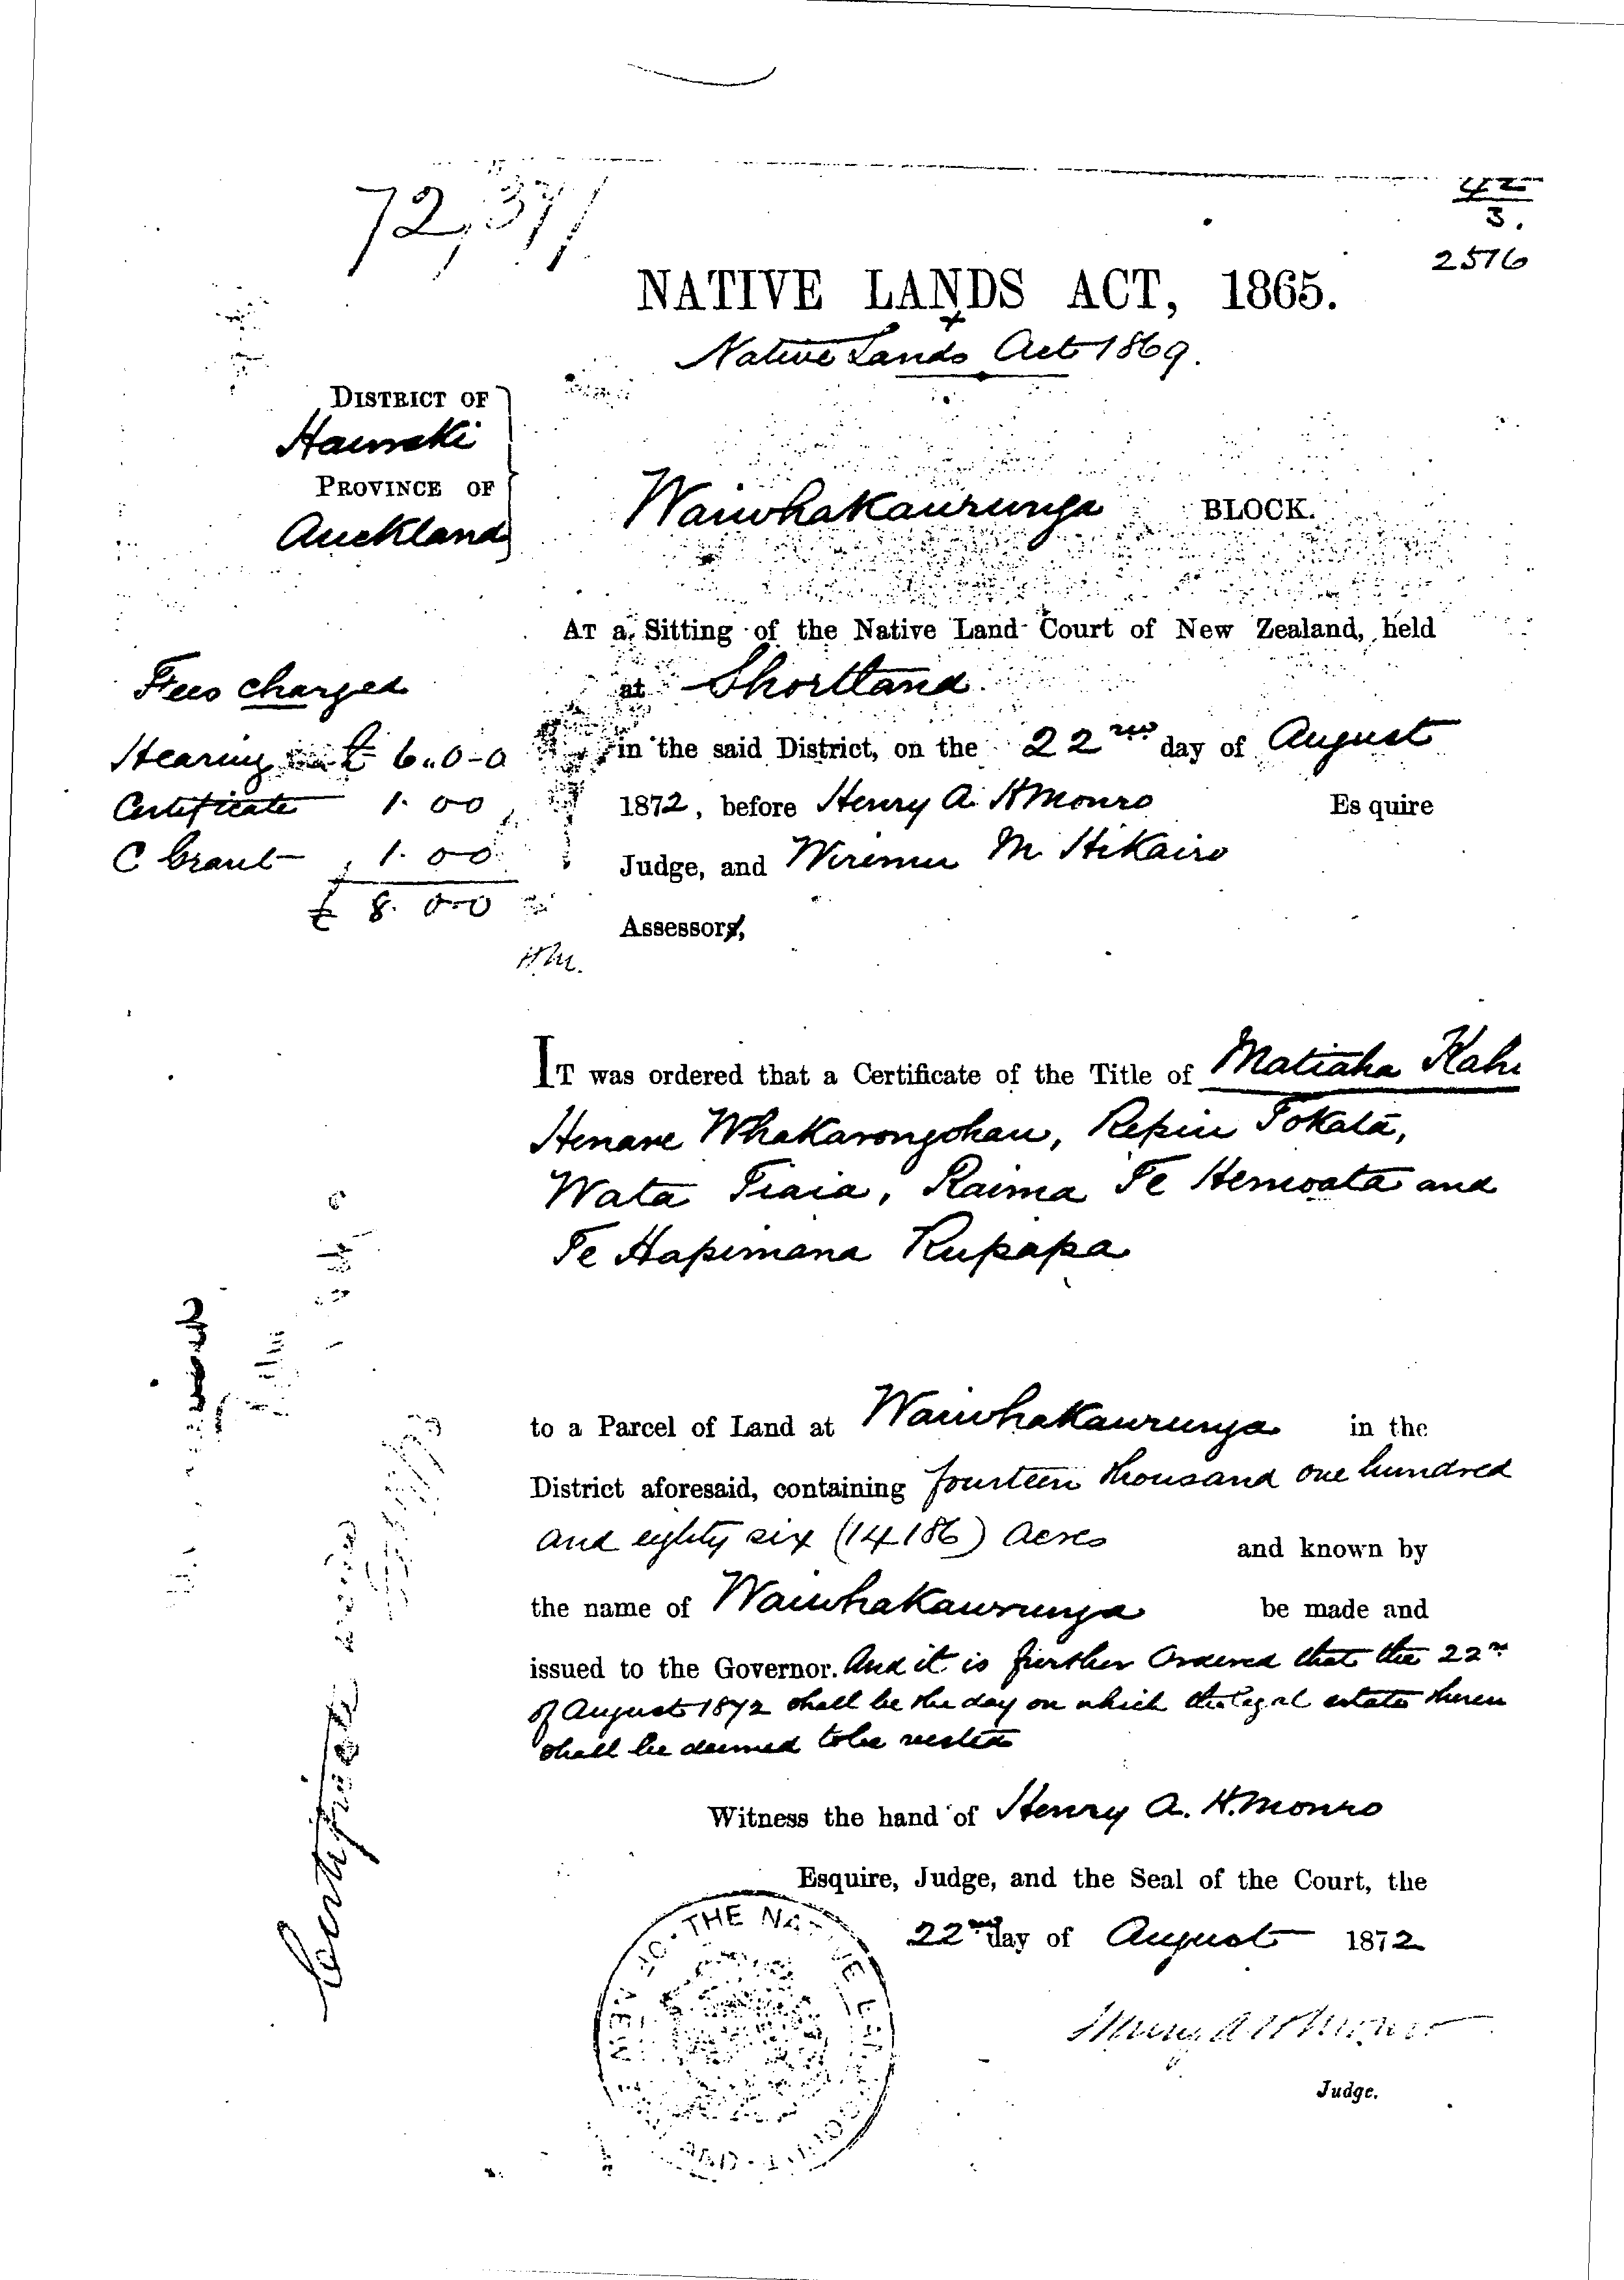 72,371
42
3.
2576
NATIVE LANDS ACT, 1865.
+
Native Lands Act 1869.
DISTRICT OF
Hauraki
PROVINCE OF
Auckland
Waiwhakaurunga BLOCK.
AT a Sitting of the Native Land Court of New Zealand, held
at Shortland
in the said District, on the 22nd day of August
1872, before Henry A. H Monro Esquire
Judge, and Wiremu M Hikairo
Assessors,
Fees charged
Hearing £ 6.0-0
Certificate 1.00
C Grant 1.00
£ 8.0-0
HM.
IT was ordered that a Certificate of the Title of Matiaha Kahi
Henare Whakarongohau, Repiu Tokata,
Wata Tiaia, Raima Te Hemoata and
Te Hapimana Rupapa
to a Parcel of Land at Waiwhakaurunga in the
District aforesaid, containing fourteen thousand one hundred
and eighty six (14186) Acres and known by
the name of Waiwhakaurunga be made and
issued to the Governor. And it is further Ordered that the 22nd
of August 1872 shall be the day on which the legal estate therein
shall be deemed to be vested
Witness the hand of Henry A. H. Monro
Esquire, Judge, and the Seal of the Court, the
22nd day of August 1872
Henry A H Monro
Judge.
Certificate
THE NATIVE LAND COURT OF NEW